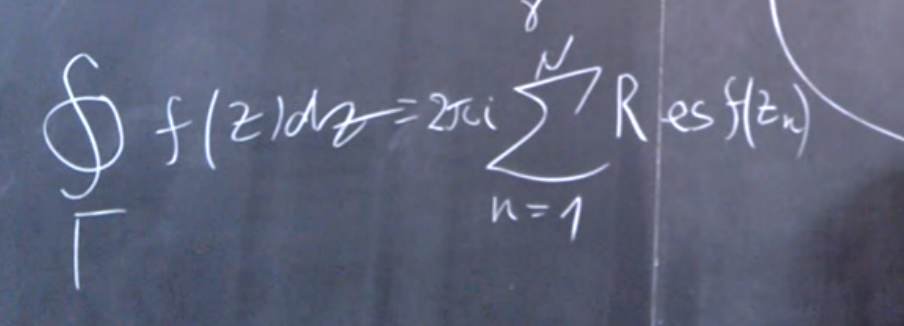 γ
∮_Γ f(z)dz = 2πi ∑_{n=1}^{N} Res f(z_n)